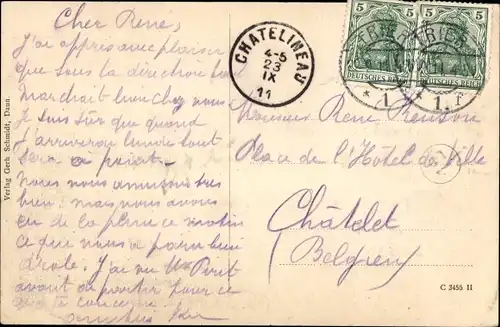 Cher René,
J'ai appris avec plaisir
que sous ta direction tout
marchait bien chez vous
Je suis sûr que quand
j'arriverai lundi tout
sera à point.
Nous nous amusons très
bien; mais nous avons
eu de la pluie ce matin
ce que nous a paru bien
drôle. J'ai vu Mr
avant de partir pour ce
qui concerne
CHATELINEAU
4-5
23
IX
11
5 5 5 5
DEUTSCHES REICH DEUTSCHES REICH
TRIER TRIER
* 1 1. r
Monsieur René
Place de l'Hôtel de Ville
2
Châtelet
(Belgien)
Verlag Gerh. Schmidt, Daun.
C 3455 II